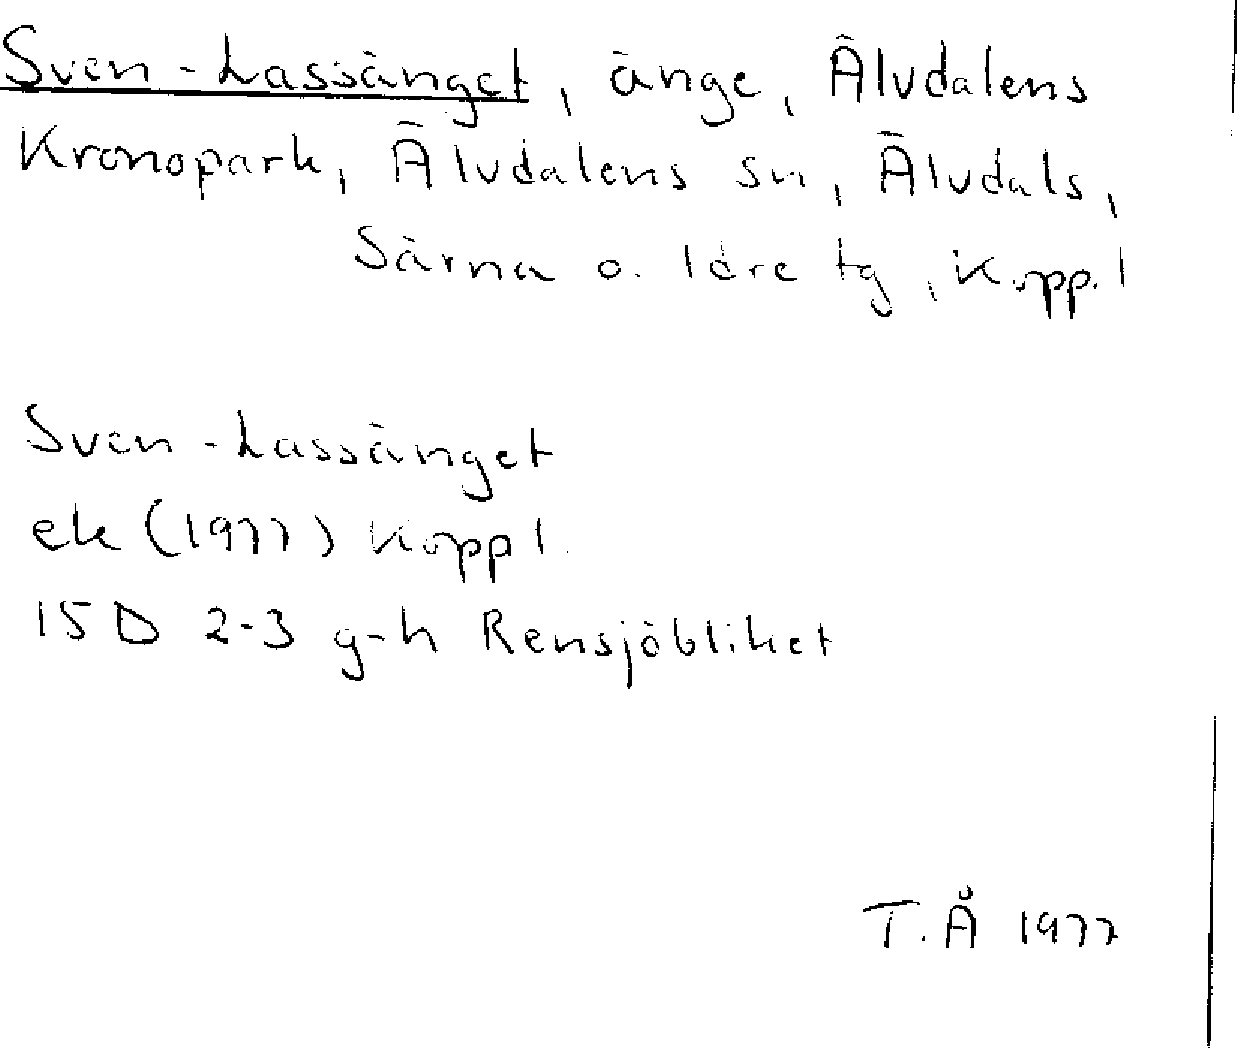 Sven-Lassänget, änge, Älvdalens
Kronopark, Älvdalens sn, Älvdals,
Särna o. Idre tg, Kopp. l
Sven-Lassänget
ek (1977) Kopp l.
15 D 2-3 g-h Rensjöbliket
T.Å 1977